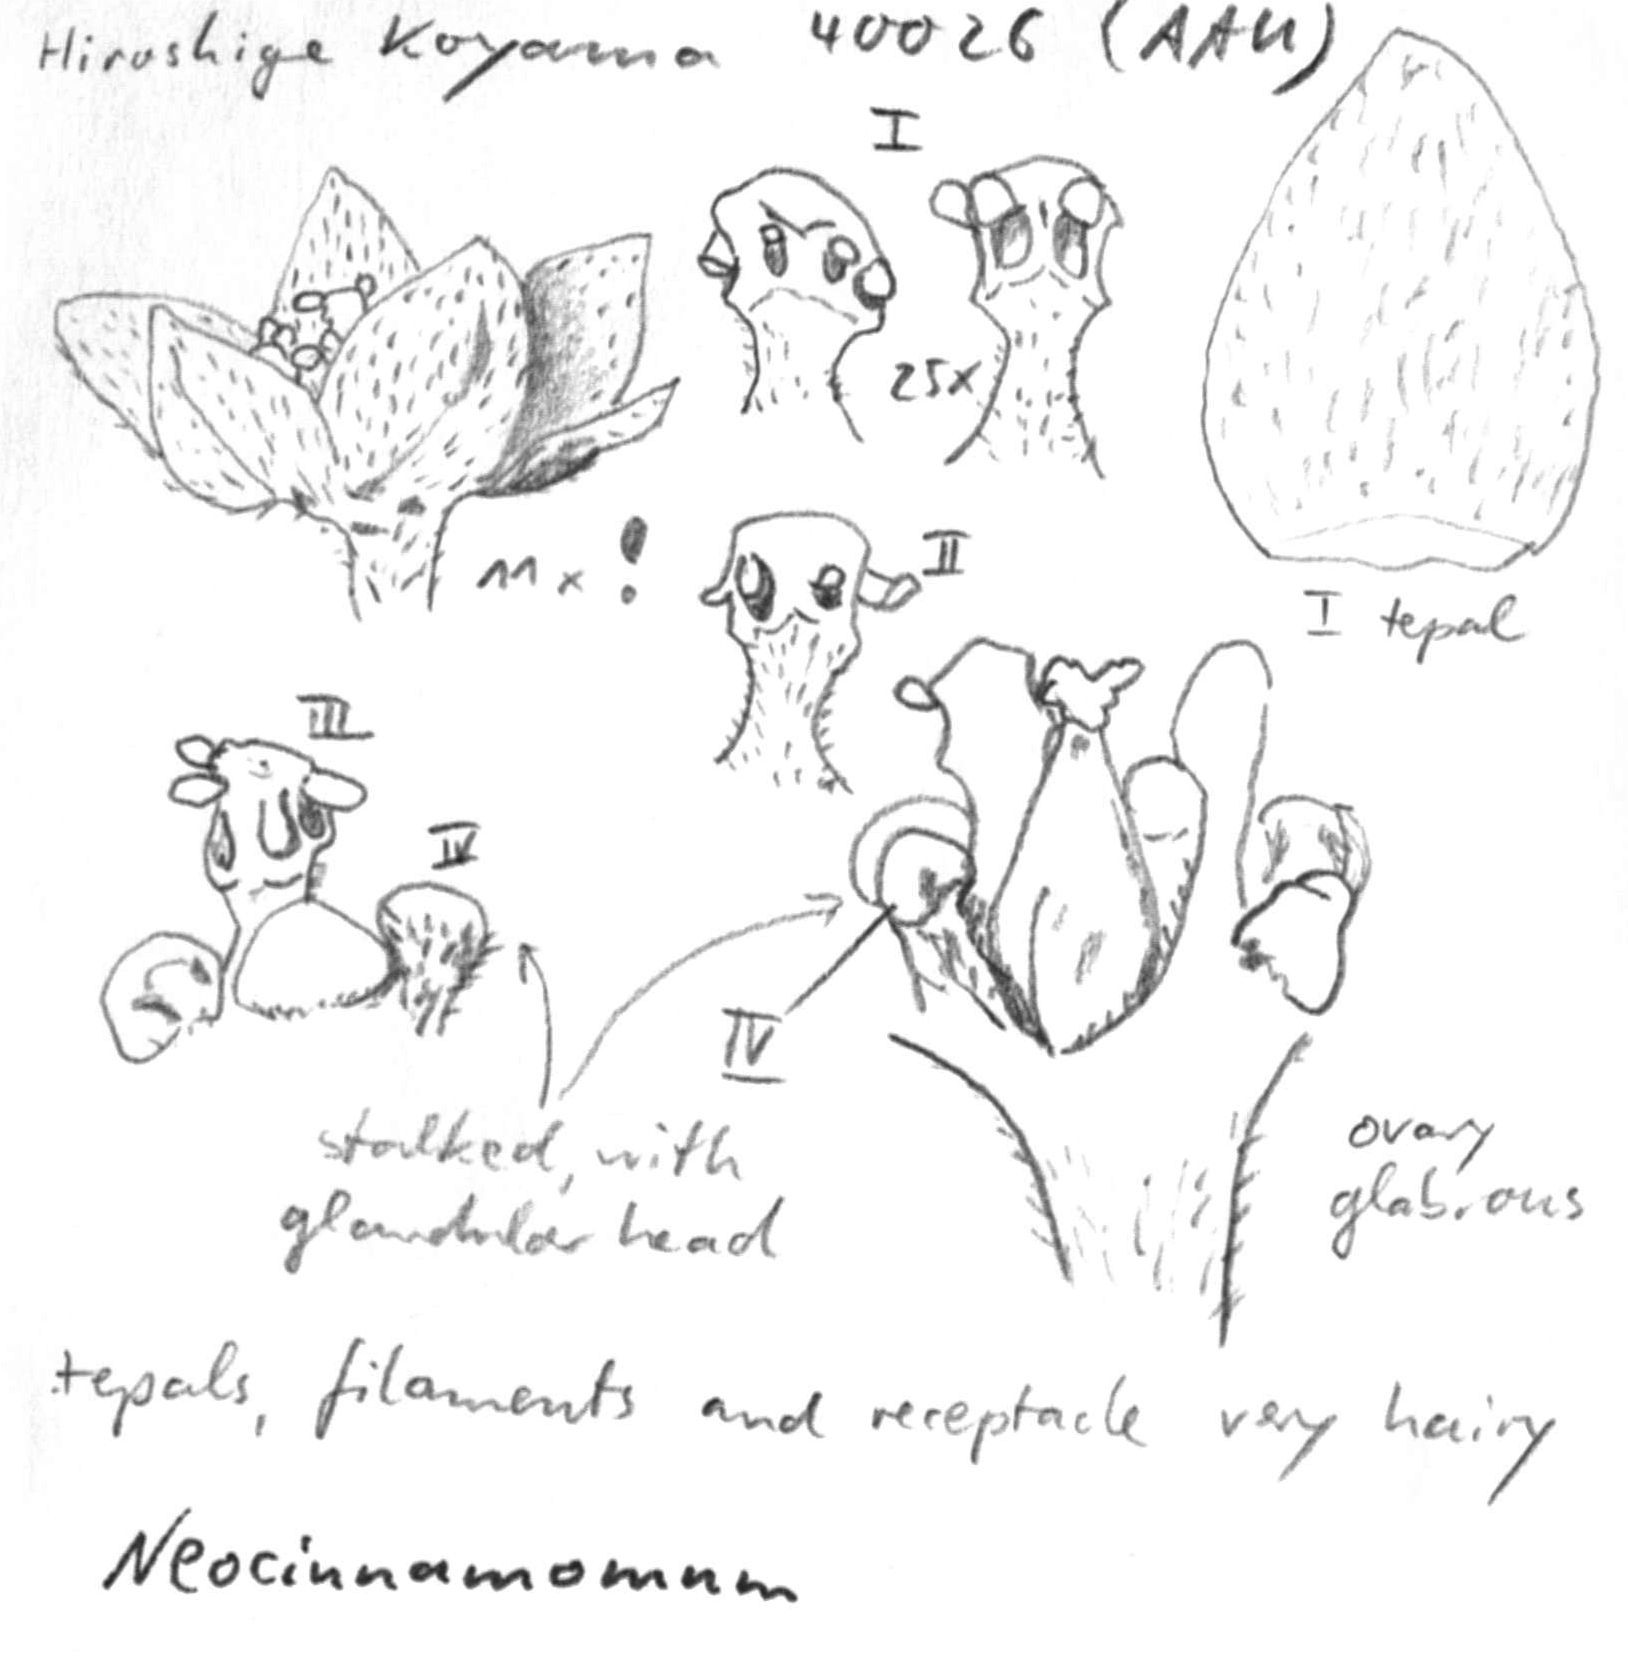 Hiroshige Koyama 40026 (AAU)
I
25x
11x !
II
I tepal
III
IV
IV
stalked, with
glandular head
ovary
glabrous
tepals, filaments and receptacle very hairy
Neocinnamomum